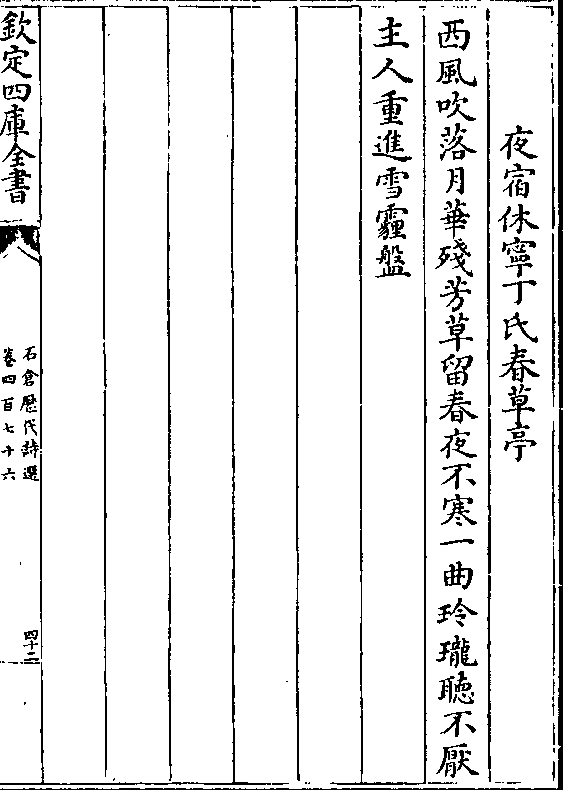 夜宿休寧丁氏春草亭
西風吹落月華殘芳草留春夜不寒一曲玲瓏聽不厭
主人重進雪霾盤
欽定四庫全書
石倉歷代詩選
卷四百七十六
四十二